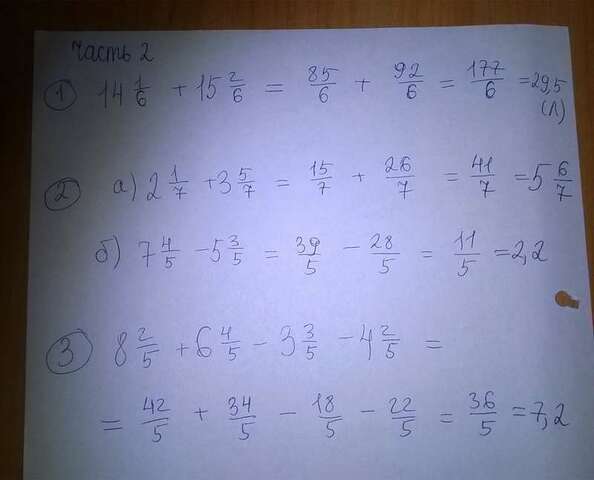 Часть 2
① 14 1/6 + 15 2/6 = 85/6 + 92/6 = 177/6 = 29,5
(л)
② а) 2 1/7 + 3 5/7 = 15/7 + 26/7 = 41/7 = 5 6/7
б) 7 4/5 - 5 3/5 = 39/5 - 28/5 = 11/5 = 2,2
③ 8 2/5 + 6 4/5 - 3 3/5 - 4 2/5 =
= 42/5 + 34/5 - 18/5 - 22/5 = 36/5 = 7,2